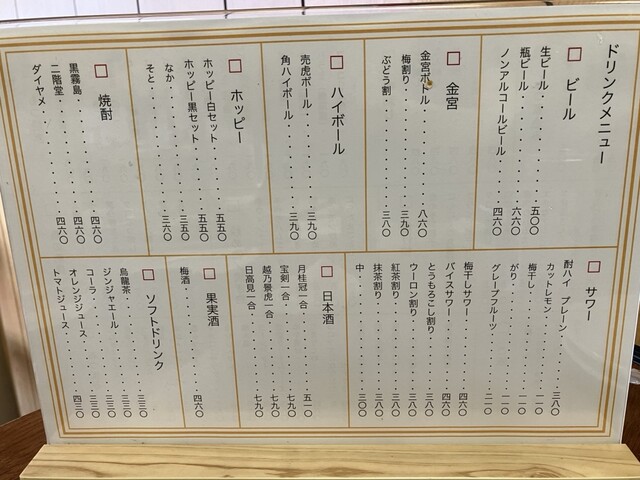 ドリンクメニュー
□ ビール
生ビール・・・・・・・・五〇〇
瓶ビール・・・・・・・・六六〇
ノンアルコールビール・・・・四六〇
□ 金宮
金宮ボトル・・・・・・・八六〇
梅割り・・・・・・・・三九〇
ぶどう割・・・・・・・三八〇
□ ハイボール
売虎ボール・・・・・・・三九〇
角ハイボール・・・・・・三九〇
□ ホッピー
ホッピー白セット・・・・五五〇
ホッピー黒セット・・・・五五〇
なか・・・・・・・・三六〇
そと・・・・・・・・
□ 焼酎
黒霧島・・・・・・・・四六〇
二階堂・・・・・・・・四六〇
ダイヤメ・・・・・・・四六〇
□ サワー
酎ハイ プレーン・・・・・三八〇
カットレモン・・・・・・一一〇
梅干し・・・・・・・・一一〇
がり・・・・・・・・一一〇
グレープフルーツ・・・・二一〇
梅干しサワー・・・・・・四六〇
バイスサワー・・・・・・四六〇
とうもろこし割り・・・・三八〇
ウーロン割り・・・・・・三八〇
紅茶割り・・・・・・・三八〇
抹茶割り・・・・・・・三八〇
中・・・・・・・・三〇〇
□ 日本酒
月桂冠一合・・・・・・五一〇
宝剣一合・・・・・・・七九〇
越乃景虎一合・・・・・七九〇
日高見一合・・・・・・七九〇
□ 果実酒
梅酒・・・・・・・・四六〇
□ ソフトドリンク
烏龍茶・・・・・・・・三三〇
ジンジャエール・・・・・三三〇
コーラ・・・・・・・・三三〇
オレンジジュース・・・・三三〇
トマトジュース・・・・・四三〇